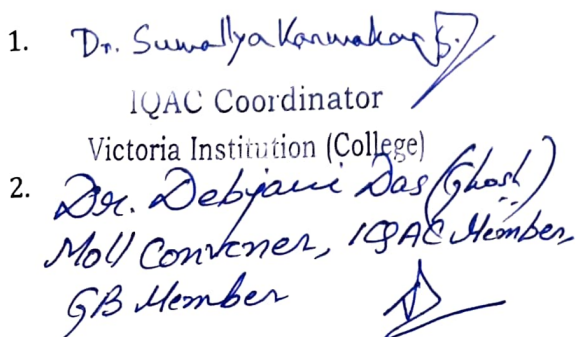 1. Dr. Sumallya Karmakar
IQAC Coordinator
Victoria Institution (College)
2. Dr. Debjani Das (Ghosh)
MoU Convener, IQAC Member,
GB Member